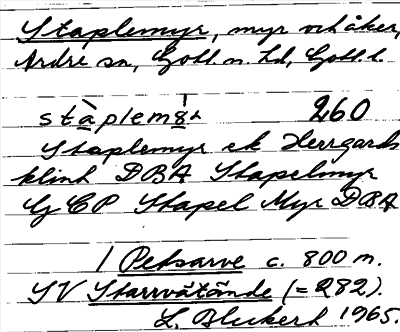 Staplemyr, myr och åker,
Ardre sn, Gotl. n. hd, Gotl. l.
260
Staplemyr ek Herrgards
klint DBA Stapelmyr
GCP Stapel Myr DBA
1 Petsarve c. 800 m.
SV Starrvätände (= 282).
1965.